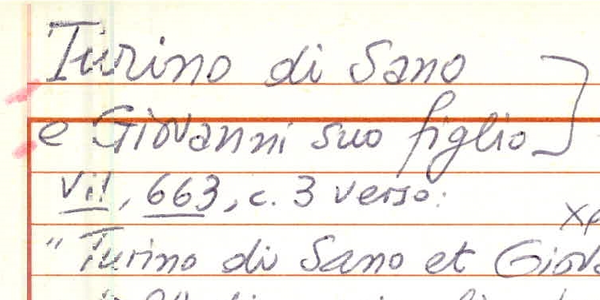 Turino di Sano
e Giovanni suo figlio
VII, 663, c. 3 verso:
"Turino di Sano et Giova